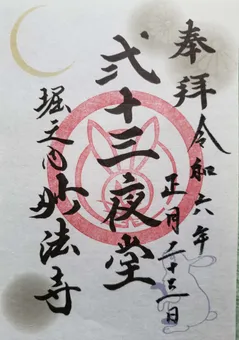 奉拝
令和六年
正月二十三日
弐十三夜堂
堀之内妙法寺